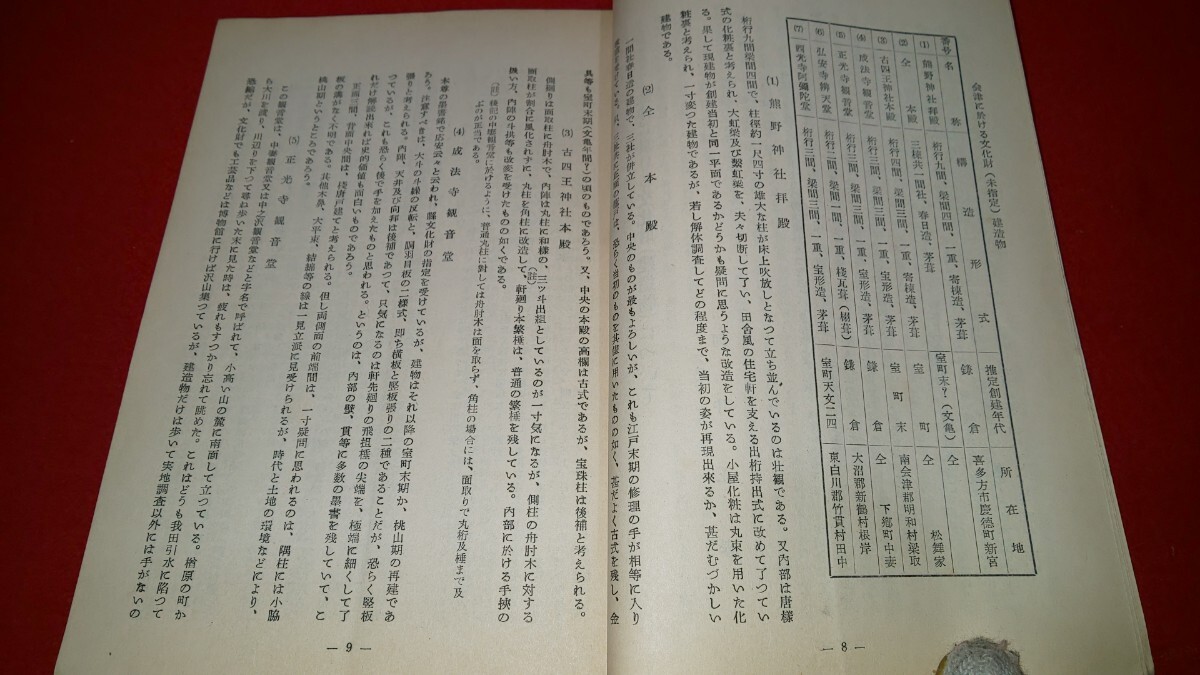 会津に於ける文化財(未指定)建造物
番号 名称 構造形式 推定創建年代 所在地
(1) 熊野神社拝殿 桁行九間、梁間四間、一重、寄棟造、茅葺 鎌倉 喜多方市慶徳町新宮
(2) 仝 本殿 三棟共一間社、春日造、茅葺 室町末?(文亀) 仝
(3) 古四王神社本殿
(4) 成法寺観音堂
(5) 正光寺観音堂
(6) 弘安寺弁天堂
(7) 西光寺阿弥陀堂 桁行三間、梁間三間、一重、宝形造、茅葺 室町天文二四 東白川郡竹貫村田中
(1) 熊野神社拝殿
桁行九間梁間四間で、柱径約一尺四寸の雄大な柱が床上吹放しとなつて立ち並んでいるのは壮観である。又内部は唐様
式の化粧裏と考えられ、大虹梁及び繋虹梁を、夫々切断して了い、田舎風の住宅軒を支える出桁持出式に改めて了つてい
る。果して現建物が創建当初と同一平面であるかどうかも疑問に思うような改造をしている。小屋化粧は丸束を用いた化
粧裏と考えられ、一寸変つた建物であるが、若し解体調査してどの程度まで、当初の姿が再現出来るか、甚だむづかしい
建物である。
(2) 仝 本殿
一間社春日造の建物で、三社が併立している。中央のものが最もよろしいが、これも江戸末期の修理の手が相等に入り
― 8 ―
具等も室町末期(文亀年間?)の頃のものであろう。又、中央の本殿の高欄は古式であるが、宝珠柱は後補と考えられる。
(3) 古四王神社本殿
側廻りは面取柱に舟肘木で、内陣は丸柱に和様の、三ツ斗出組としているのが一寸気になるが、側柱の舟肘木に対する
面取柱が割合に風化されずに、丸柱を角柱に改造して、軒廻り本繁棰は、普通の繁棰を残している。内部に於ける手挾の
扱い方、内陣の斗拱等も改変を受けたものの如くである。
(註) 後出の中壇観音堂に於けるように、普通丸柱に対しては舟肘木は面を取らず、角柱の場合には、面取りで丸桁及棰まで及
ぶのが正当である。
(4) 成法寺観音堂
本尊の墨書銘で応安云々と云われ、県文化財の指定を受けているが、建物はそれ以降の室町末期か、桃山期の再建であ
ろう。注意すべきは、大斗の斗繰の反転と、胴羽目板の二様式、即ち横板と竪板張りの二種であることだが、恐らく竪板
張りと考えられる。内陣、天井及び向拝は後補であつて、只気になるのは軒先廻りの飛掾棰の尖端を、極端に細くして了
つているが、これも恐らく後で手を加えたものと思われる。というのは、内部の壁、貫等に多数の墨書を残していて、こ
れだけ解読出来れば史的価値も面白いものであろう。
正面三間、背面中央間は、桟唐戸建てと考えられる。但し両側面の前端間は、一寸疑問に思われるのは、隅柱には小脇
板の溝がなく不明である。其他木鼻、大平束、結綿等の縁は一見立派に見受けられるが、時代と土地の環境などにより、
桃山期というところであろう。
(5) 正光寺観音堂
この観音堂は、中壇観音堂又は中之沢観音堂などと字名で呼ばれて、小高い山の麓に南面して立つている。楢原の町か
ら大川を渡り、川辺りを下つて尋ね歩いた末に見た時は、疲れもすつかり忘れて眺めた。これはどうも我田引水に陥つて
恐縮だが、文化財でも工芸品などは博物館に行けば沢山集つているが、建造物だけは歩いて実地調査以外には手がないの
― 9 ―